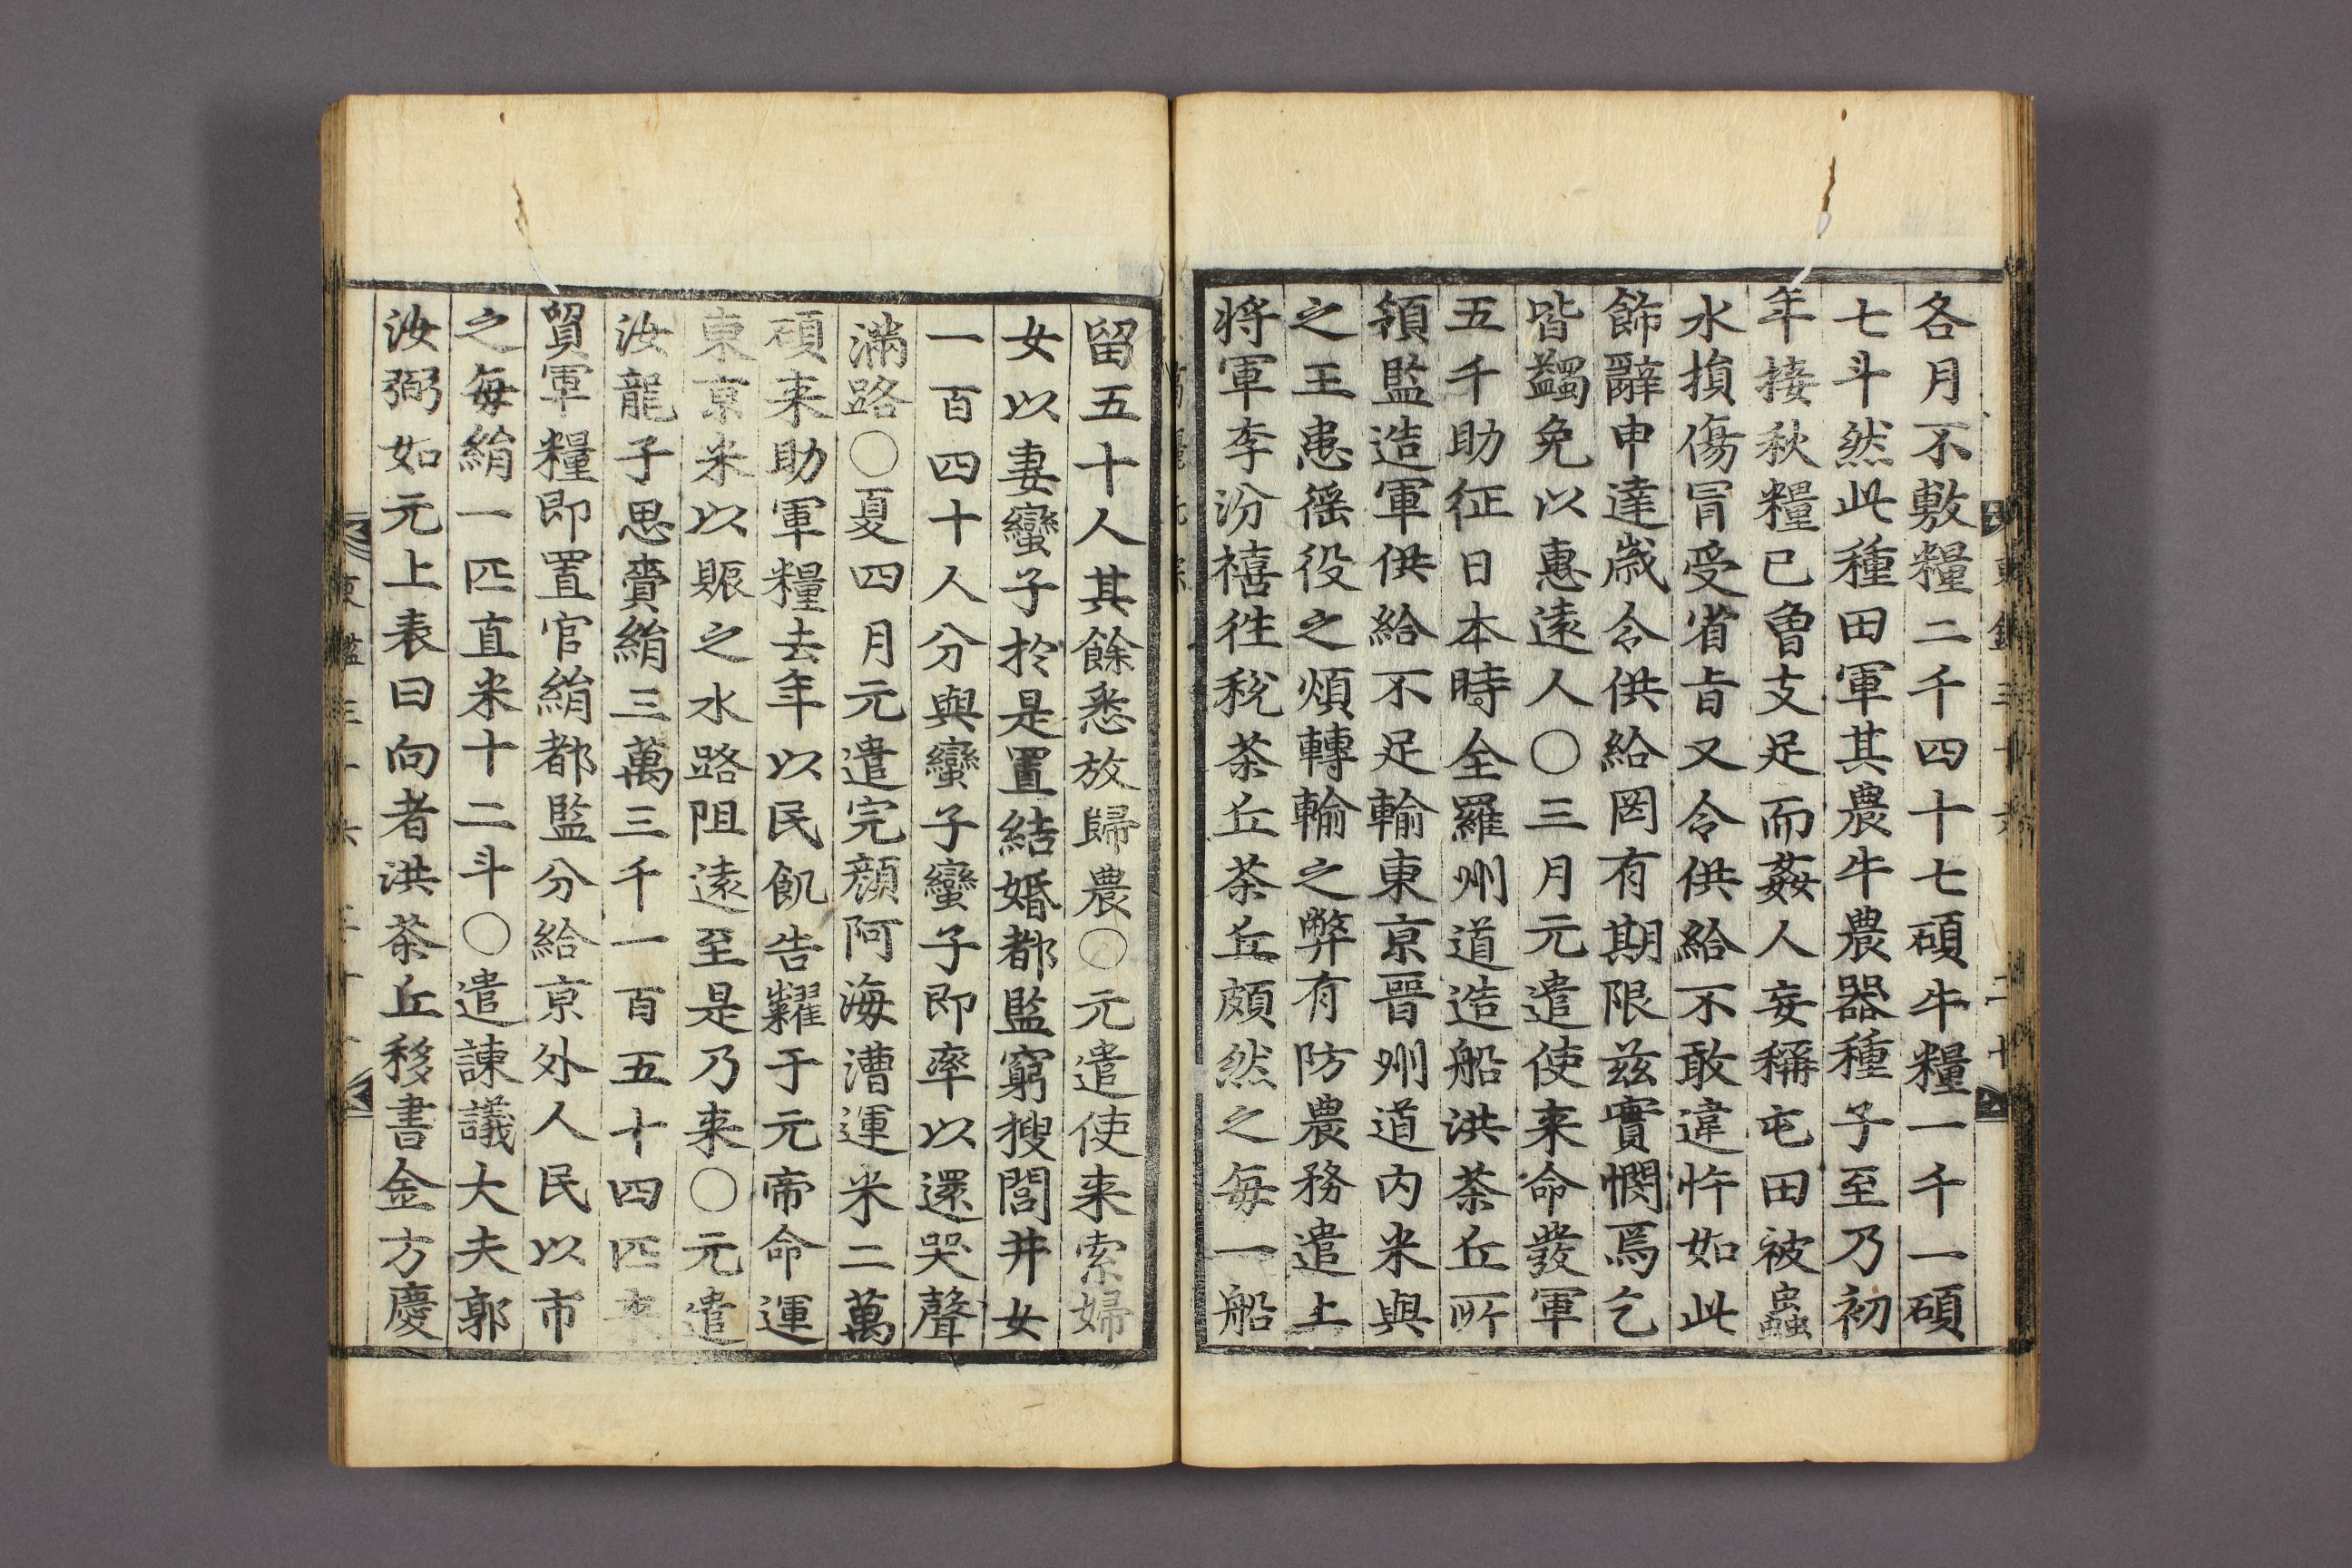 各月不敷糧二千四十七碩牛糧一千一碩
七斗然此種田軍其農牛農器種子至乃初
年接秋糧已曾支足而姦人妄稱屯田被蟲
水損傷冐受省旨又令供給不敢違忤如此
飾辭申達嵗令供給罔有期限兹實憫焉乞
皆蠲免以惠遠人〇三月元遣使来命發軍
五千助征日本時全羅州道造船洪茶丘所
領監造軍供給不足輸東京晉州道内米與
之王患徭役之煩轉輸之弊有防農務遣上
将軍李汾禧徃税茶丘茶丘頗然之每一船
留五十人其餘悉放歸農〇元遣使来索婦
女以妻蠻子於是置結婚都監窮搜閭井女
一百四十人分與蠻子蠻子即率以還哭聲
滿路〇夏四月元遣完顔阿海漕運米二萬
碩来助軍糧去年以民飢告糶于元帝命運
東京米以賑之水路阻遠至是乃来〇元遣
汝龍于思賷絹三萬三千一百五十四匹来
貿軍糧即置官絹都監分給京外人民以市
之每絹一匹直米十二斗〇遣諫議大夫郭
汝弼如元上表曰向者洪茶丘移書金方慶